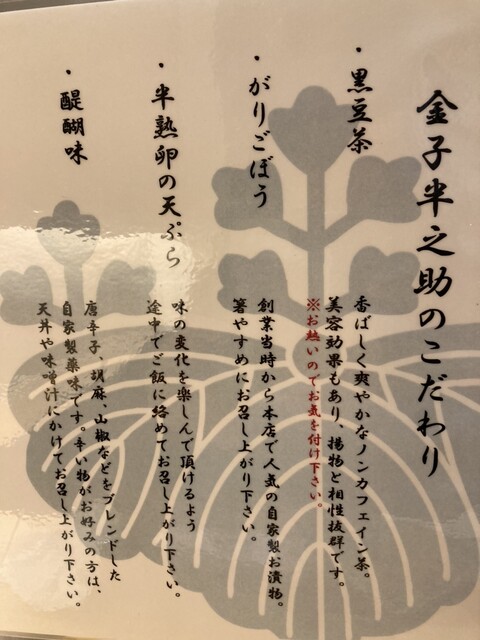 金子半之助のこだわり
・黒豆茶
香ばしく爽やかなノンカフェイン茶。
美容効果もあり、揚物と相性抜群です。
※お熱いのでお気を付け下さい。
・がりごぼう
創業当時から本店で人気の自家製お漬物。
箸やすめにお召し上がり下さい。
・半熟卵の天ぷら
味の変化を楽しんで頂けるよう
途中でご飯に絡めてお召し上がり下さい。
・醍醐味
唐辛子、胡麻、山椒などをブレンドした
自家製薬味です。辛い物がお好みの方は、
天丼や味噌汁にかけてお召し上がり下さい。